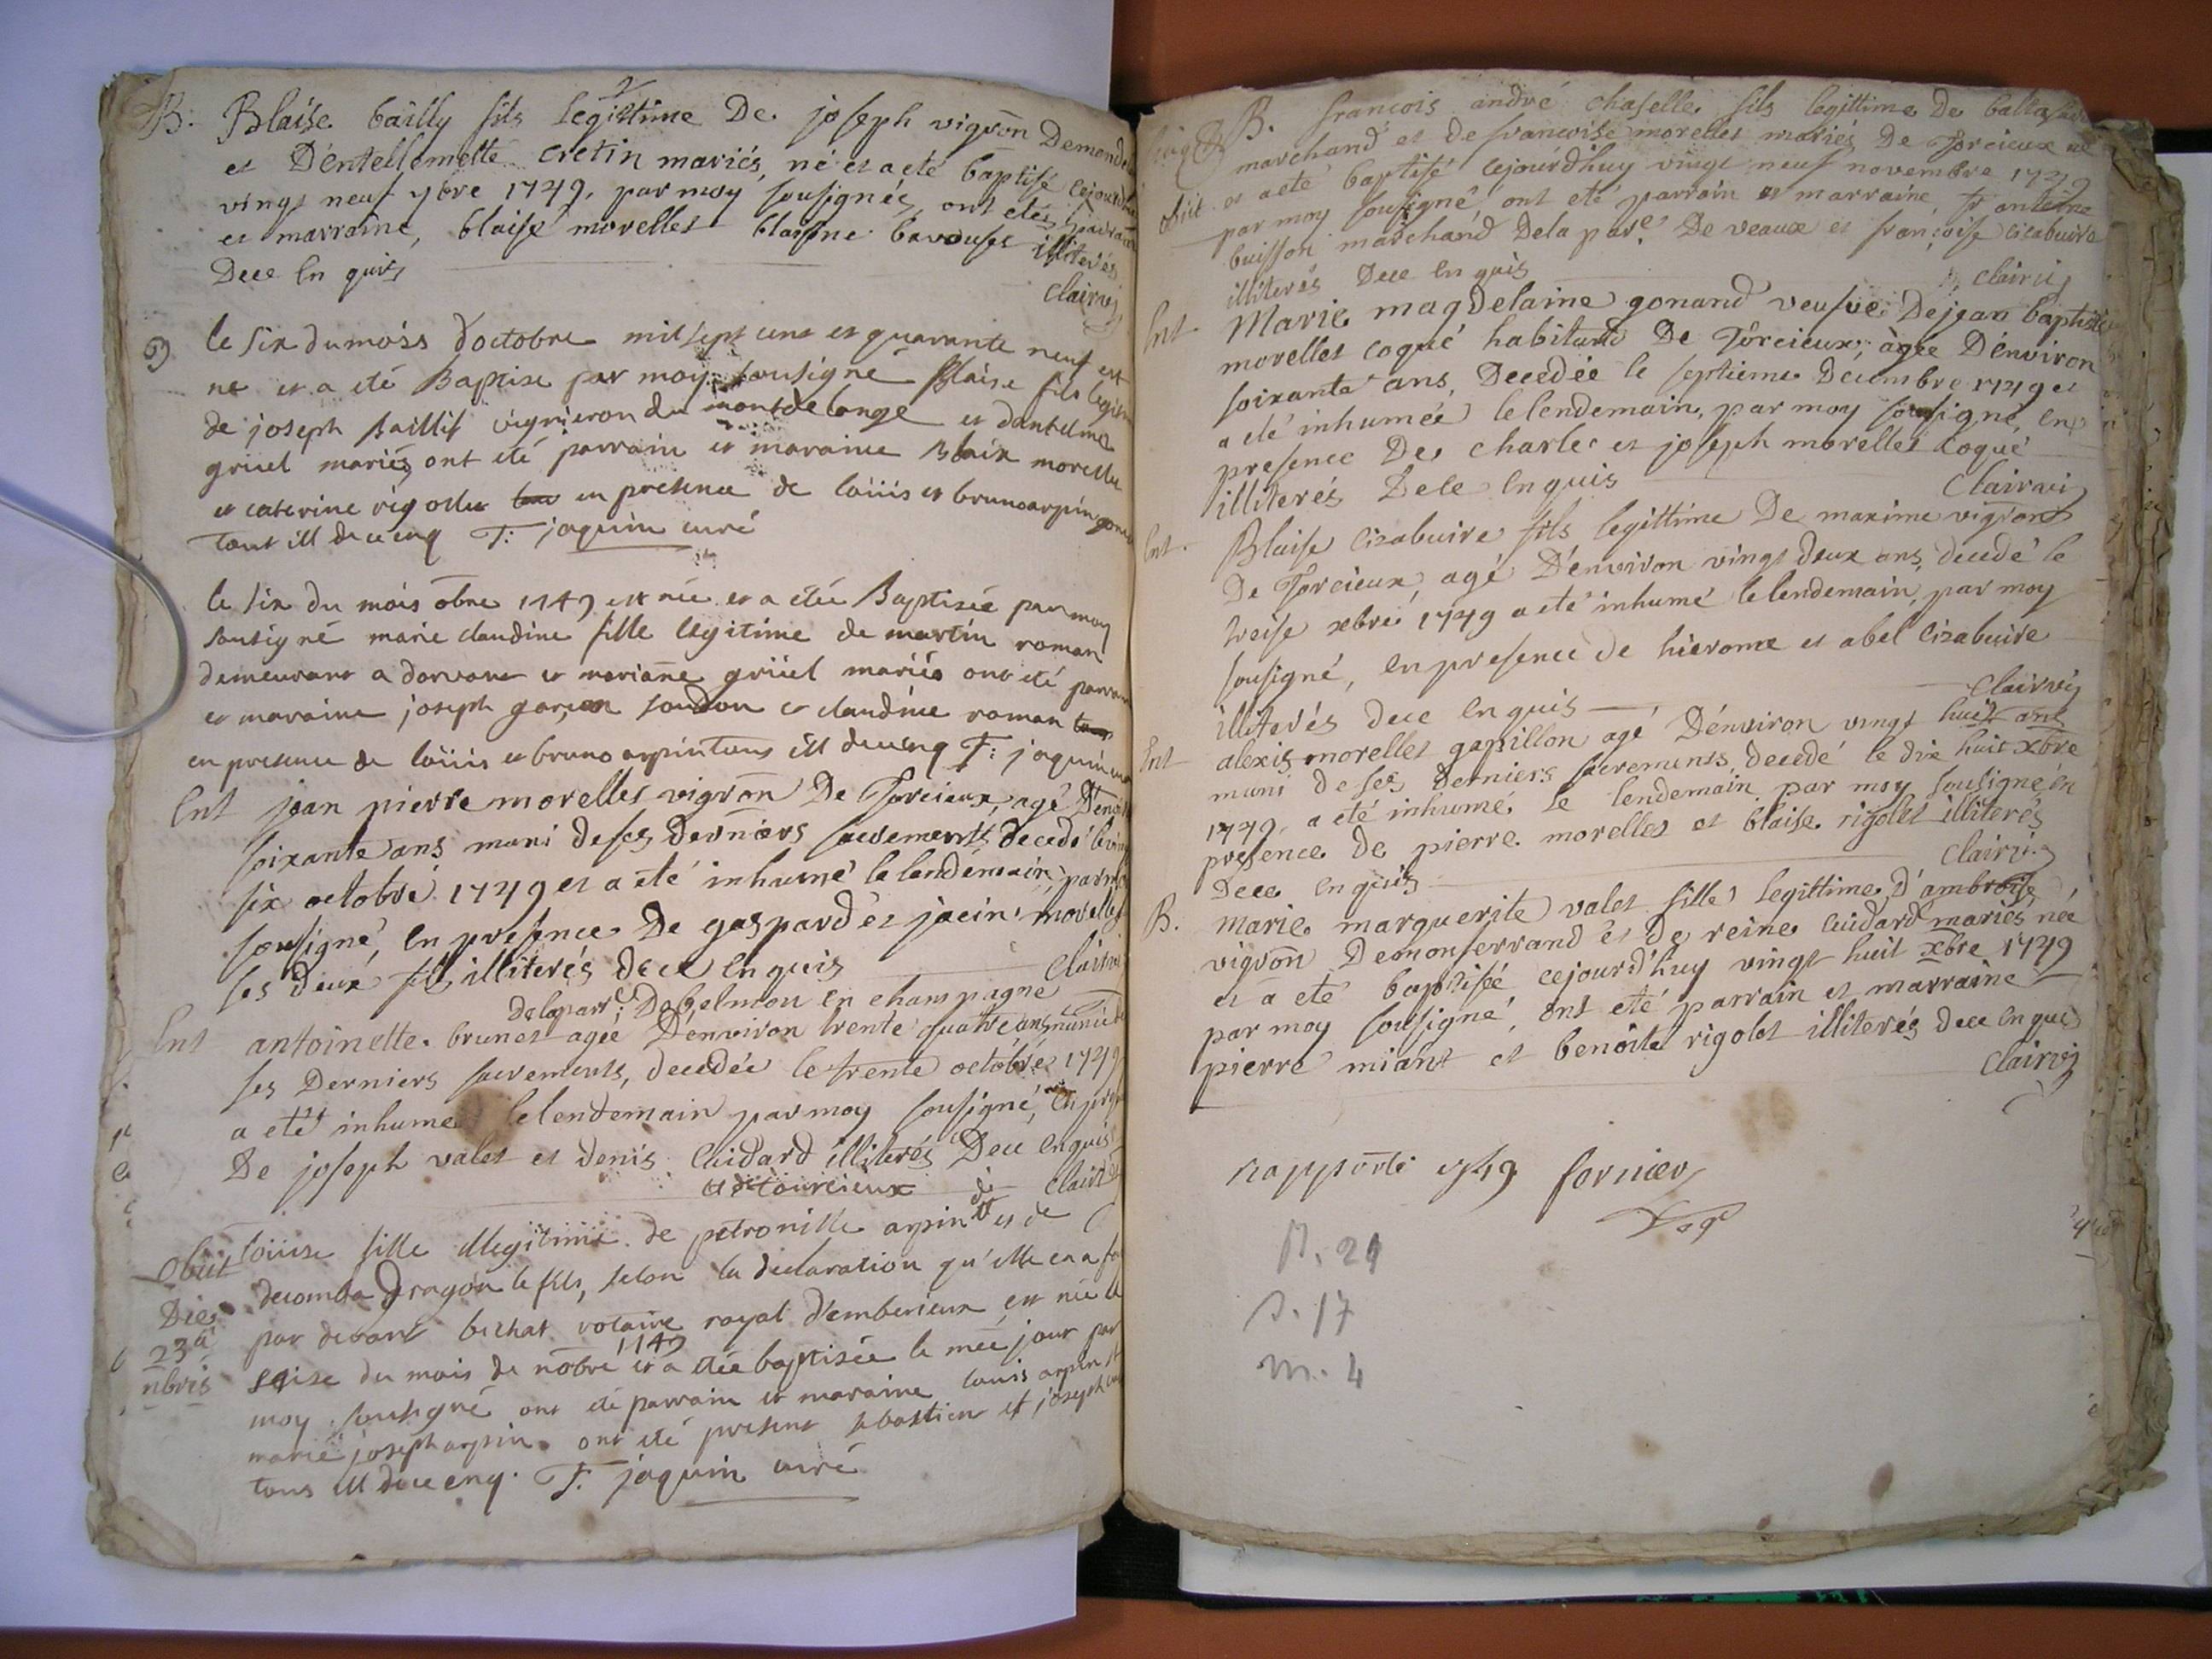 2
B. Blaise bailly fils legittime De joseph vigron Demond
et D'entellemette cretin mariés, né et a eté baptisé cejourdhuy
vingt neuf 7bre 1749, par moy sousigné, ont etés parrain
et marraine, blaise morellet blaisine bavouse illiterés
Dece Enquis
Clairvi
B le six du mois d'octobre mil sept cent et quarante neuf est
né et a été Baptisé par moy sousigné Blaise fils legitime
de joseph Baillif vignieron du montdelange et dantelme
gruel mariés, ont été parrain et maraine Blaise morellet
et caterine rigollet en presence de loüis et bruno arpin
tous ill dece enq F: joaquin curé
le six du mois 8bre 1749 est née et a étée Baptisée par moy
sousigné marie claudine fille legitime de martin roman
demeurant a dorvant et marianne grüel mariés ont été parrain
et maraine joseph garçon et claudine roman
en presence de loüis et bruno arpin tous ill dece enq F: joaquin
Ent jean pierre morellet vigron De Torcieux, agé D'environ
soixante ans muni de ses Derniers sacrements, decedé le vingt
six octobre 1749 et a eté inhumé le lendemain, par moy
sousigné, en presence De gaspard et jacint morellet
ses deux fils illiterés dece enquis
Clairvi
de la parr.e De belmon en champagne
Ent antoinette brunet agée D'environ trente quatre ans munie de
ses Derniers sacrements, decedée le trente octobre 1749
a eté inhumée le lendemain par moy sousigné, en presence
De joseph valet et denis Cuidard illiterés Dece enquis
de tourcieux Clairvi
obiit loüise fille illegitime de petronille arpin et de
decomba Dragon le fils, selon la declaration qu'elle en a fait
Die par devant bichat notaire royal d'emberieux, est née le
23a seise du mois de nobre 1749 et a étée baptisée le mée jour par
nbris moy sousigné ont été parrain et maraine louis arpin et
marie joseph arpin. ont été present sebastien et joseph
tous ill dece enq. F. joaquin curé
B. francois andré chaselle fils legittime De baltasar
marchand et de francoise morellet mariés De Torcieux né
obiit et a eté baptisé cejourd'huy vingt neuf novembre 1749
par moy sousigné ont eté parrain et marraine, Sr antoine
buisson marchand De la pare De veaux et françoise cizabuire
illiterés Dece Enquis
Clairvi
Ent Marie magdelaine gonand veufve De jean baptiste
morellet coqué habitante De Torcieux, agée D'environ
soixante ans, Decedée le septieme Decembre 1749 et
a eté inhumée le lendemain, par moy sousigné, en
presence De charle et joseph morellet coqué
illiterés Dece Enquis
Clairvi
Ent. Blaise cizabuire fils legittime De maxime vigron
De Torcieux, agé D'environ vingt deux ans, decedé le
treise xbre 1749 a eté inhumé le lendemain, par moy
sousigné, en presence de hierome et abel cizabuire
illiterés dece enquis
Clairvi
Ent alexis morellet gapillon agé D'environ vingt huit ans
muni de ses derniers sacrements, decedé le dix huit xbre
1749, a eté inhumé le lendemain par moy sousigné en
presence de pierre morellet et blaise rigolet illiterés
Dece enquis
Clairvi
B. Marie marguerite valet fille legittime D'ambroise
vigron Demonferrand et De reine Cuidard mariés née
et a eté baptisée cejourd'huy vingt huit xbre 1749
par moy sousigné, ont eté parrain et marraine
pierre miant et benoite rigolet illiterés dece enquis
Clairvi
rapporté 1749 fornier
B. 21
S. 17
m. 4